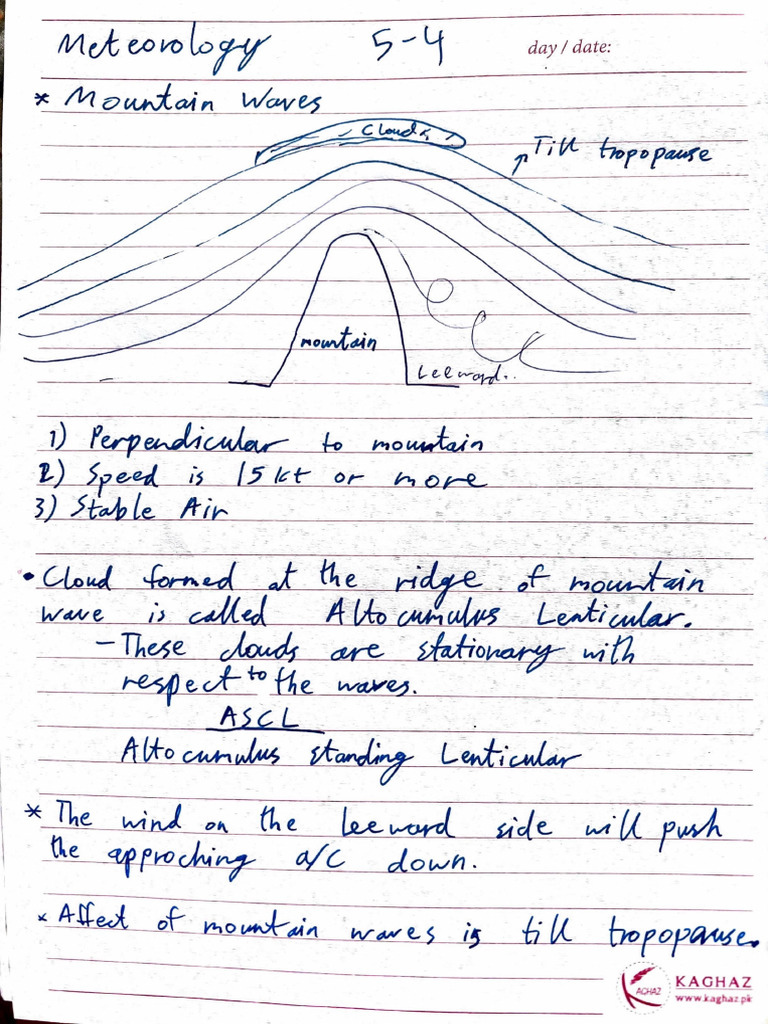 Meteorology 5-4 day / date:
* Mountain Waves
Clouds
Till tropopause
mountain
Leeward..
1) Perpendicular to mountain
2) Speed is 15kt or more
3) Stable Air
• Cloud formed at the ridge of mountain
wave is called Altocumulus Lenticular.
- These clouds are stationary with
respect to the waves.
ASCL
Altocumulus standing Lenticular
* The wind on the leeward side will push
the approching a/c down.
* Affect of mountain waves is till tropopause.
KAGHAZ
KAGHAZ
www.kaghaz.pk